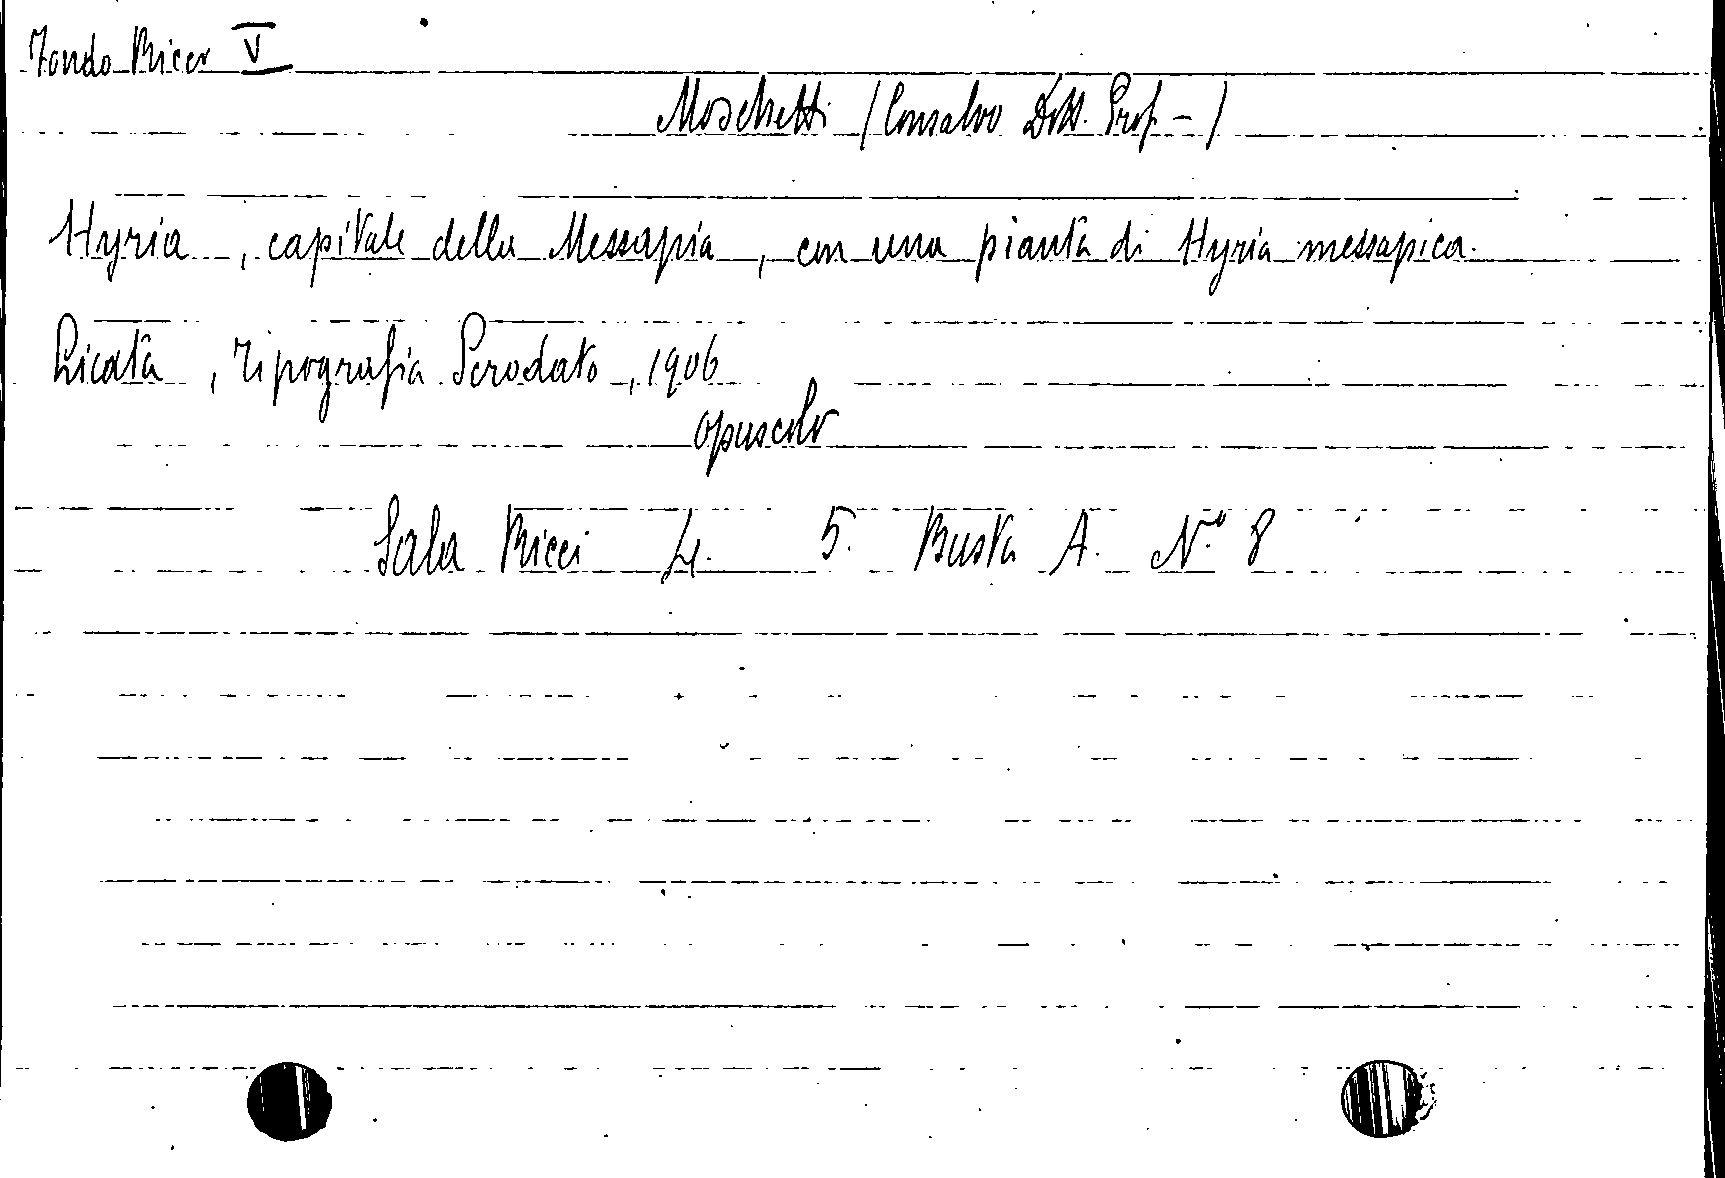 Fondo Ricci V
Moschetti (Consalvo Dott. Prof. -)
Hyria, capitale della Messapia, con una pianta di Hyria messapica.
Licata, Tipografia Serodato, 1906
opuscolo
Sala Ricci L. 5. Busta A. N.º 8